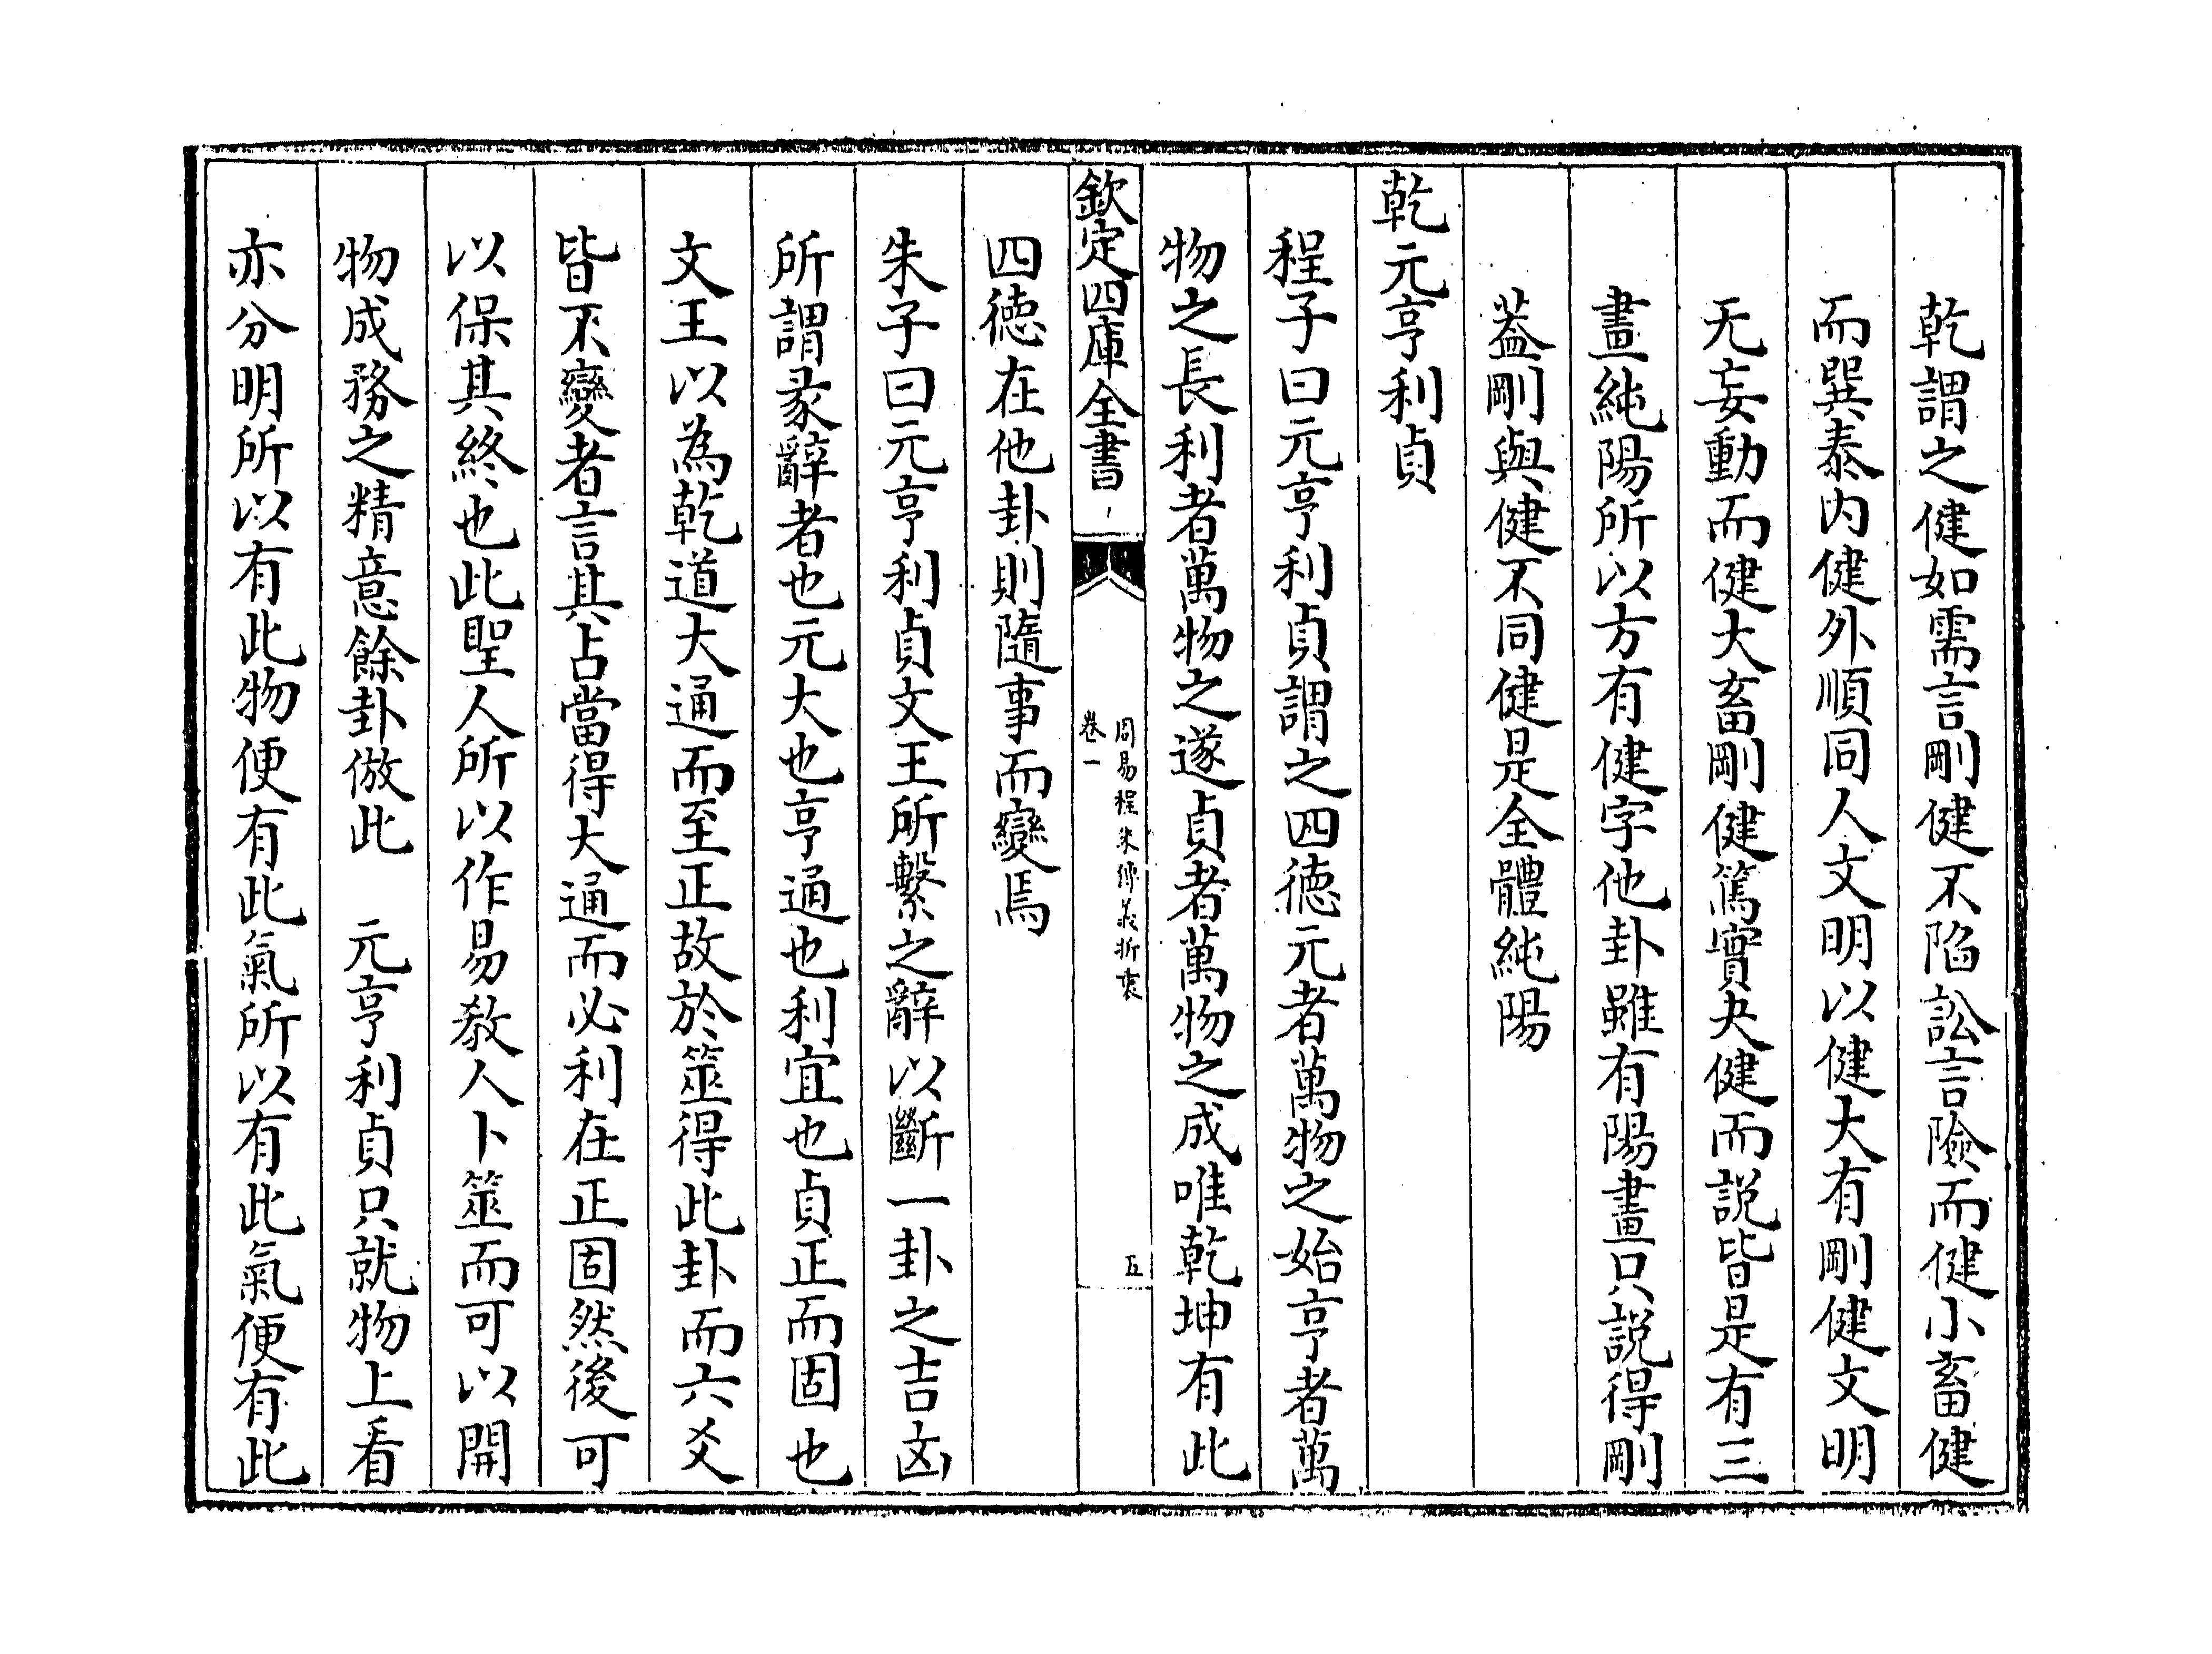 乾謂之健如需言剛健不陷訟言險而健小畜健
而巽泰内健外順同人文明以健大有剛健文明
无妄動而健大畜剛健篤實夬健而説皆是有三
畫純陽所以方有健字他卦雖有陽畫只説得剛
葢剛與健不同健是全體純陽
乾元亨利貞
程子曰元亨利貞謂之四徳元者萬物之始亨者萬
物之長利者萬物之遂貞者萬物之成唯乾坤有此
欽定四庫全書
周易程朱傳義折衷
卷一
五
四徳在他卦則隨事而變焉
朱子曰元亨利貞文王所繫之辭以斷一卦之吉凶
所謂彖辭者也元大也亨通也利宜也貞正而固也
文王以為乾道大通而至正故於筮得此卦而六爻
皆不變者言其占當得大通而必利在正固然後可
以保其終也此聖人所以作易教人卜筮而可以開
物成務之精意餘卦倣此　元亨利貞只就物上看
亦分明所以有此物便有此氣所以有此氣便有此